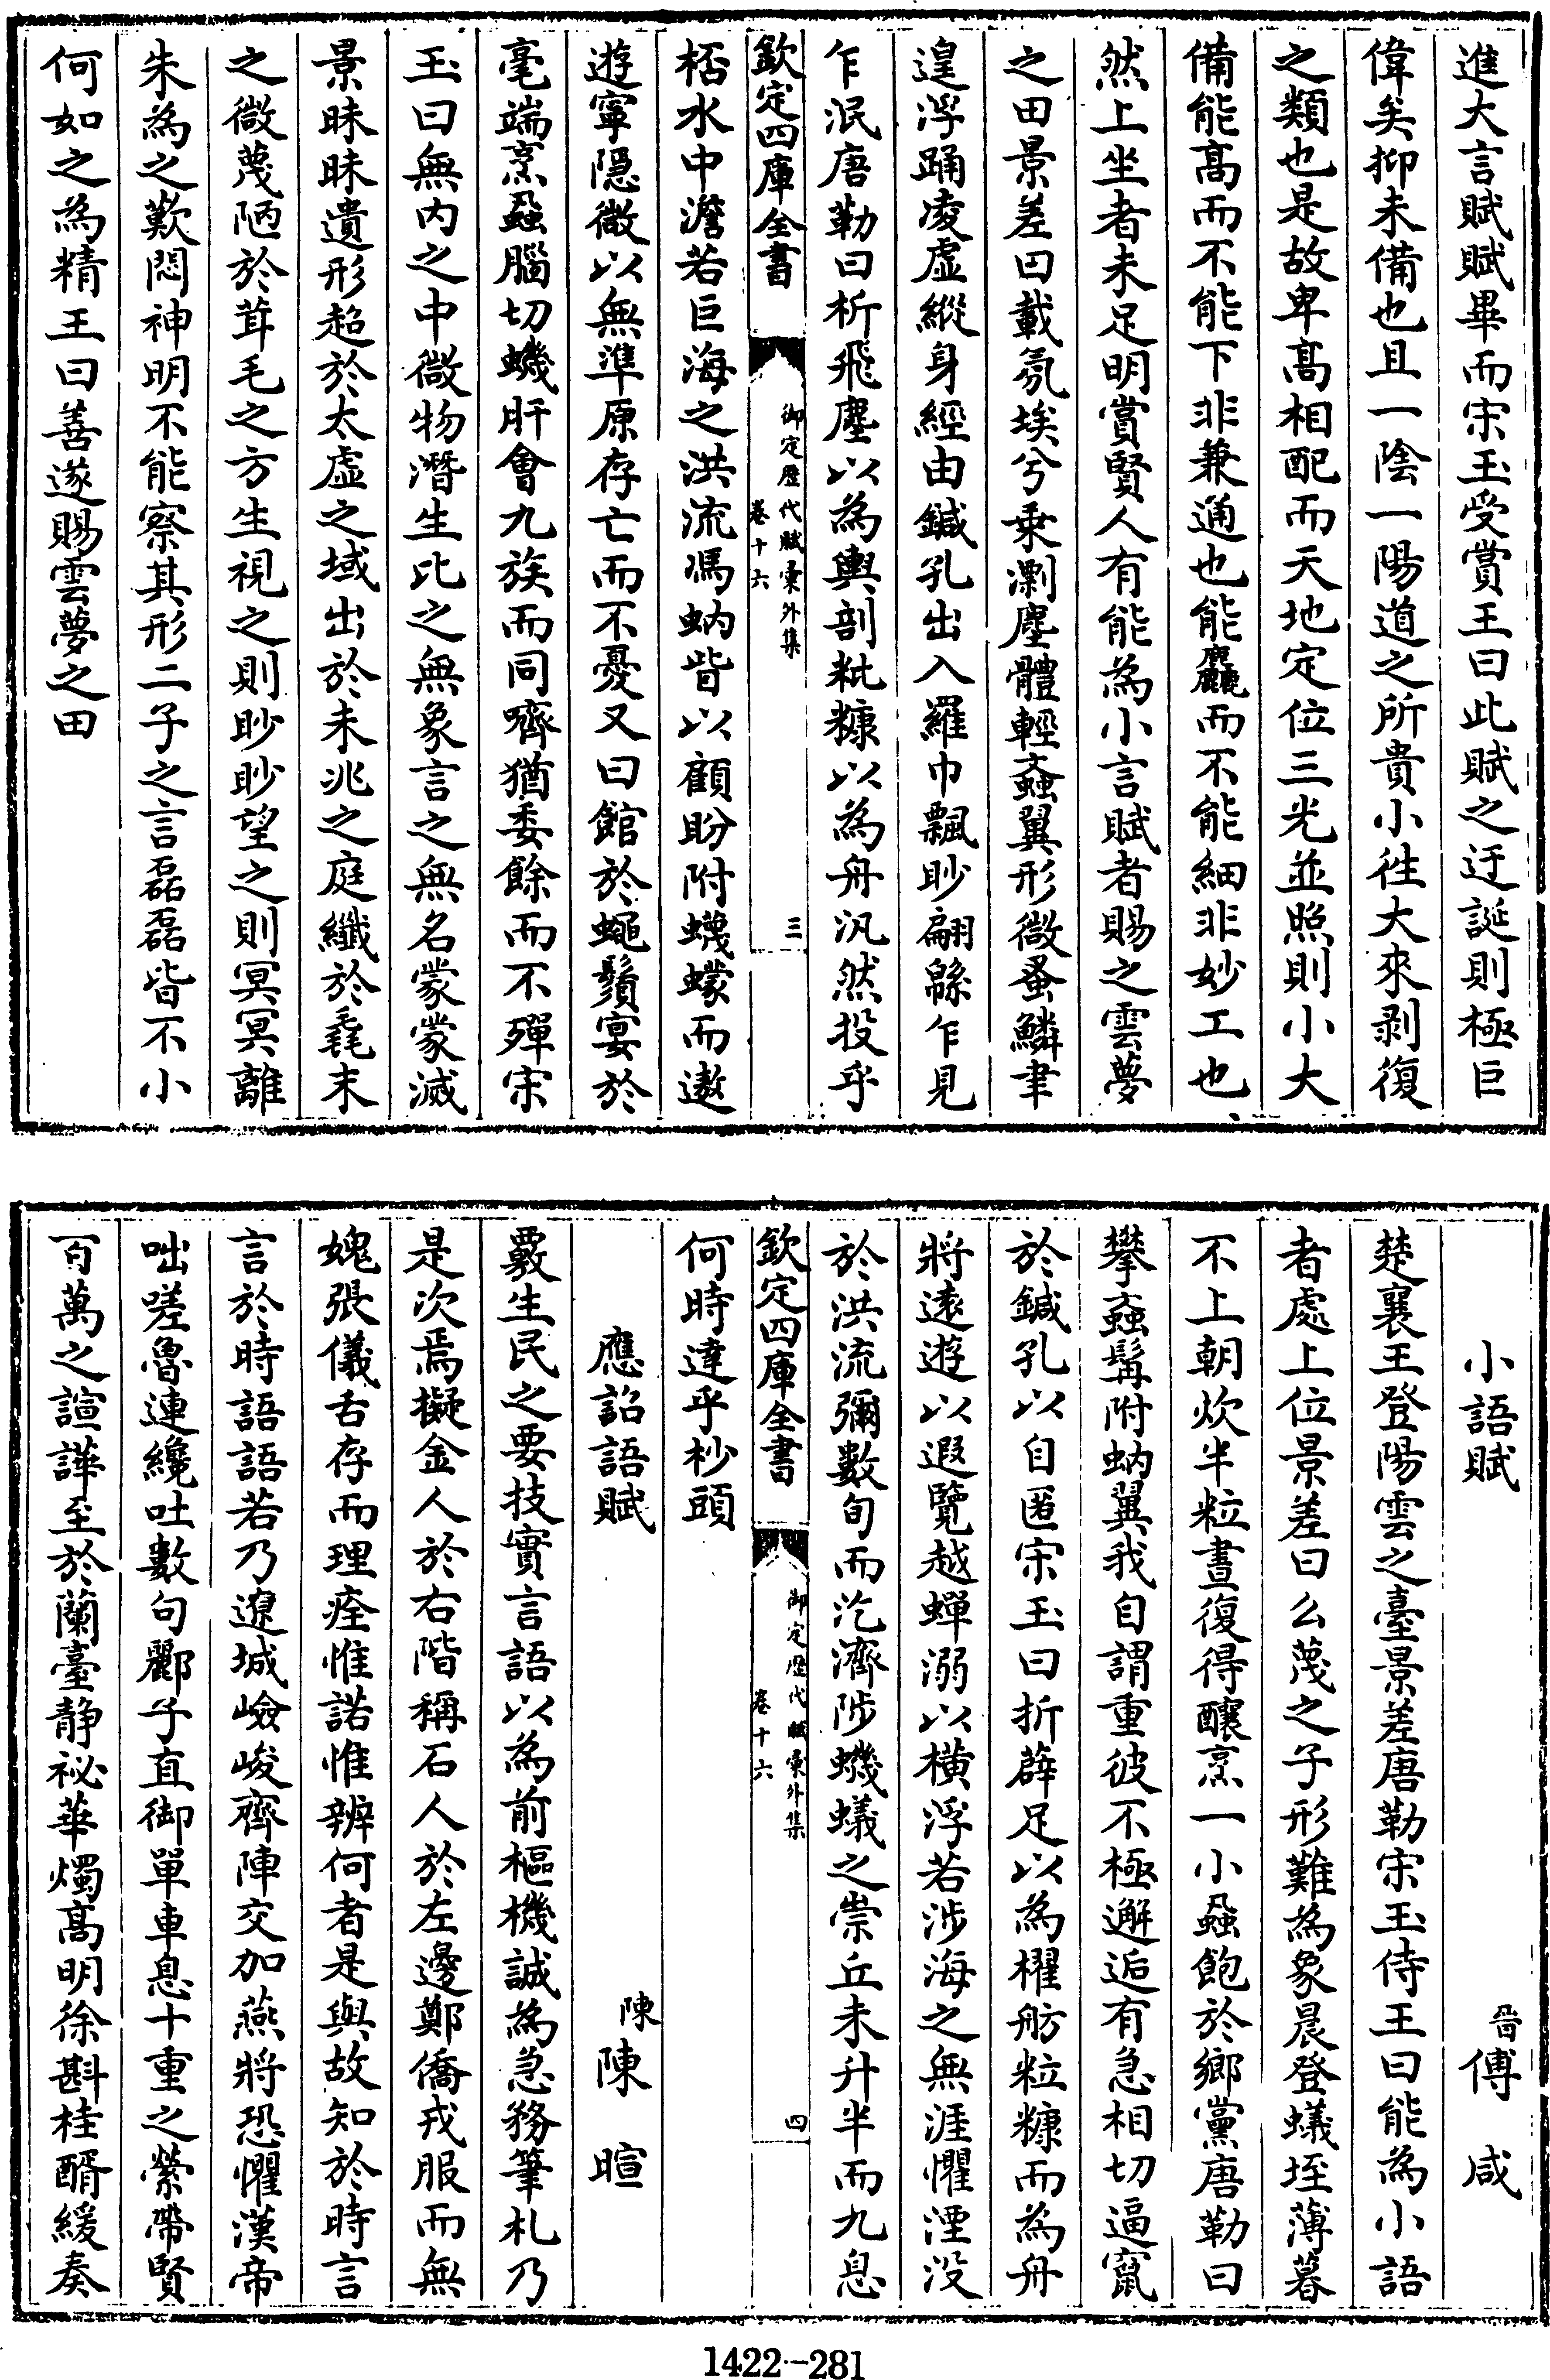 進大言賦賦畢而宋玉受賞王曰此賦之迂誕則極巨
偉矣抑未備也且一陰一陽道之所貴小往大來剥復
之類也是故卑髙相配而天地定位三光並照則小大
備能髙而不能下非兼通也能麤而不能細非妙工也
然上坐者未足明賞賢人有能為小言賦者賜之雲夢
之田景差曰載氛埃兮乗剽塵體輕蚉翼形微蚤鱗聿
遑浮踊凌虚縱身經由鍼孔出入羅巾飄眇翩緜乍見
乍泯唐勒曰析飛塵以為輿剖粃糠以為舟汎然投乎
欽定四庫全書
御定歴代賦彙外集
卷十六
三
桮水中澹若巨海之洪流馮蚋眥以顧盼附蠛蠓而遨
遊寧隠微以無準原存亡而不憂又曰館於蠅鬚宴於
毫端烹蝨腦切蟣肝會九族而同嚌猶委餘而不殫宋
玉曰無内之中微物潛生比之無象言之無名蒙蒙滅
景昧昧遺形超於太虚之域出於未兆之庭纖於毳末
之微蔑陋於茸毛之方生視之則眇眇望之則冥冥離
朱為之歎悶神明不能察其形二子之言磊磊皆不小
何如之為精王曰善遂賜雲夢之田
小語賦
晉傅咸
楚襄王登陽雲之臺景差唐勒宋玉侍王曰能為小語
者處上位景差曰么蔑之子形難為象晨登蟻垤薄暮
不上朝炊半粒晝復得釀烹一小蝨飽於鄉黨唐勒曰
攀蚉髯附蚋翼我自謂重彼不極邂逅有急相切逼竄
於鍼孔以自匿宋玉曰折薜足以為櫂舫粒糠而為舟
將逺遊以遐覽越蟬溺以横浮若涉海之無涯懼湮没
於洪流彌數旬而汔濟陟蟣蟻之崇丘未升半而九息
欽定四庫全書
御定歴代賦彙外集
卷十六
四
何時達乎杪頭
應詔語賦
陳陳暄
覈生民之要技實言語以為前樞機誠為急務筆札乃
是次焉擬金人於右階稱石人於左邊鄭僑戎服而無
媿張儀舌存而理痊惟諾惟辨何者是與故知於時言
言於時語語若乃遼城嶮峻齊陣交加燕將恐懼漢帝
咄嗟魯連纔吐數句酈子直御單車息十重之縈帶賢
百萬之諠譁至於蘭臺静祕華燭髙明徐斟桂醑緩奏
1422-281